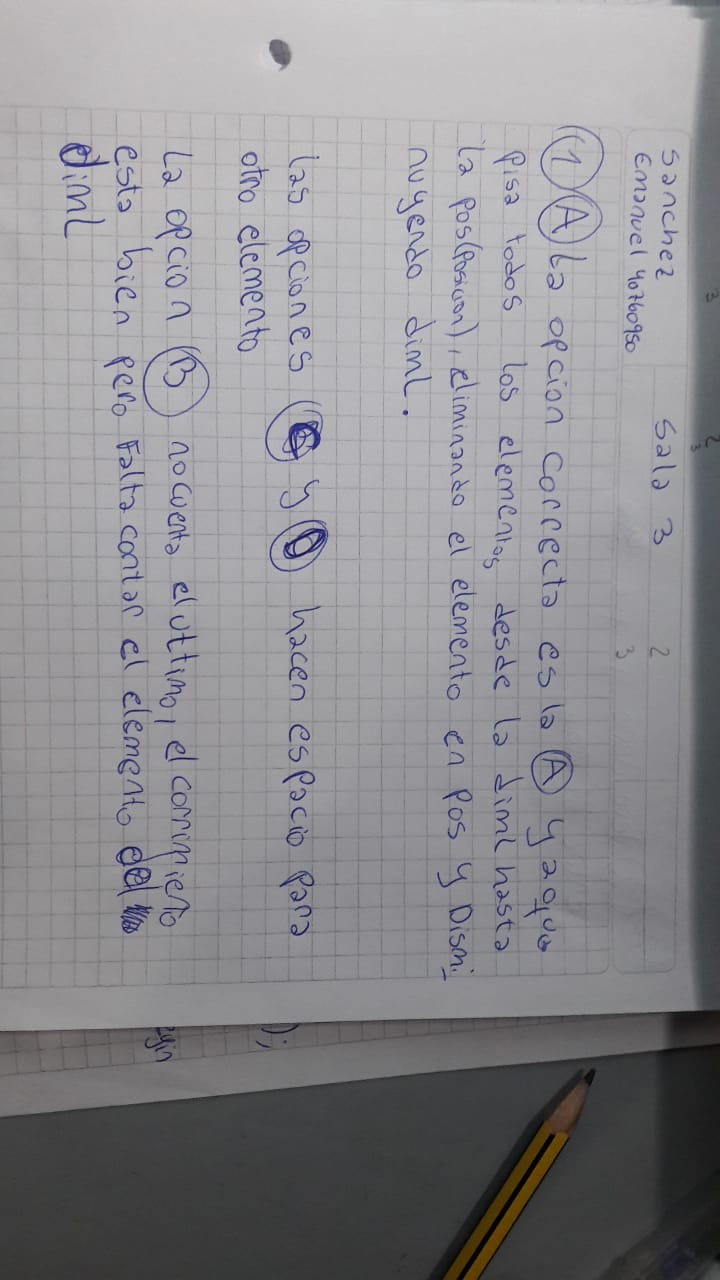 3 2
3
Sanchez Sala 3 2
Emanuel 40760950 3
1 A La opcion correcta es la A ya que
pisa todos los elementos desde la diml hasta
la pos(posicion), eliminando el elemento en pos y Dismi
nuyendo diml.
Las opciones C y D hacen espacio para
otro elemento
);
La opcion B no cuenta el ultimo, el corrimiento
egin
esta bien pero Falta contar el elemento del
diml